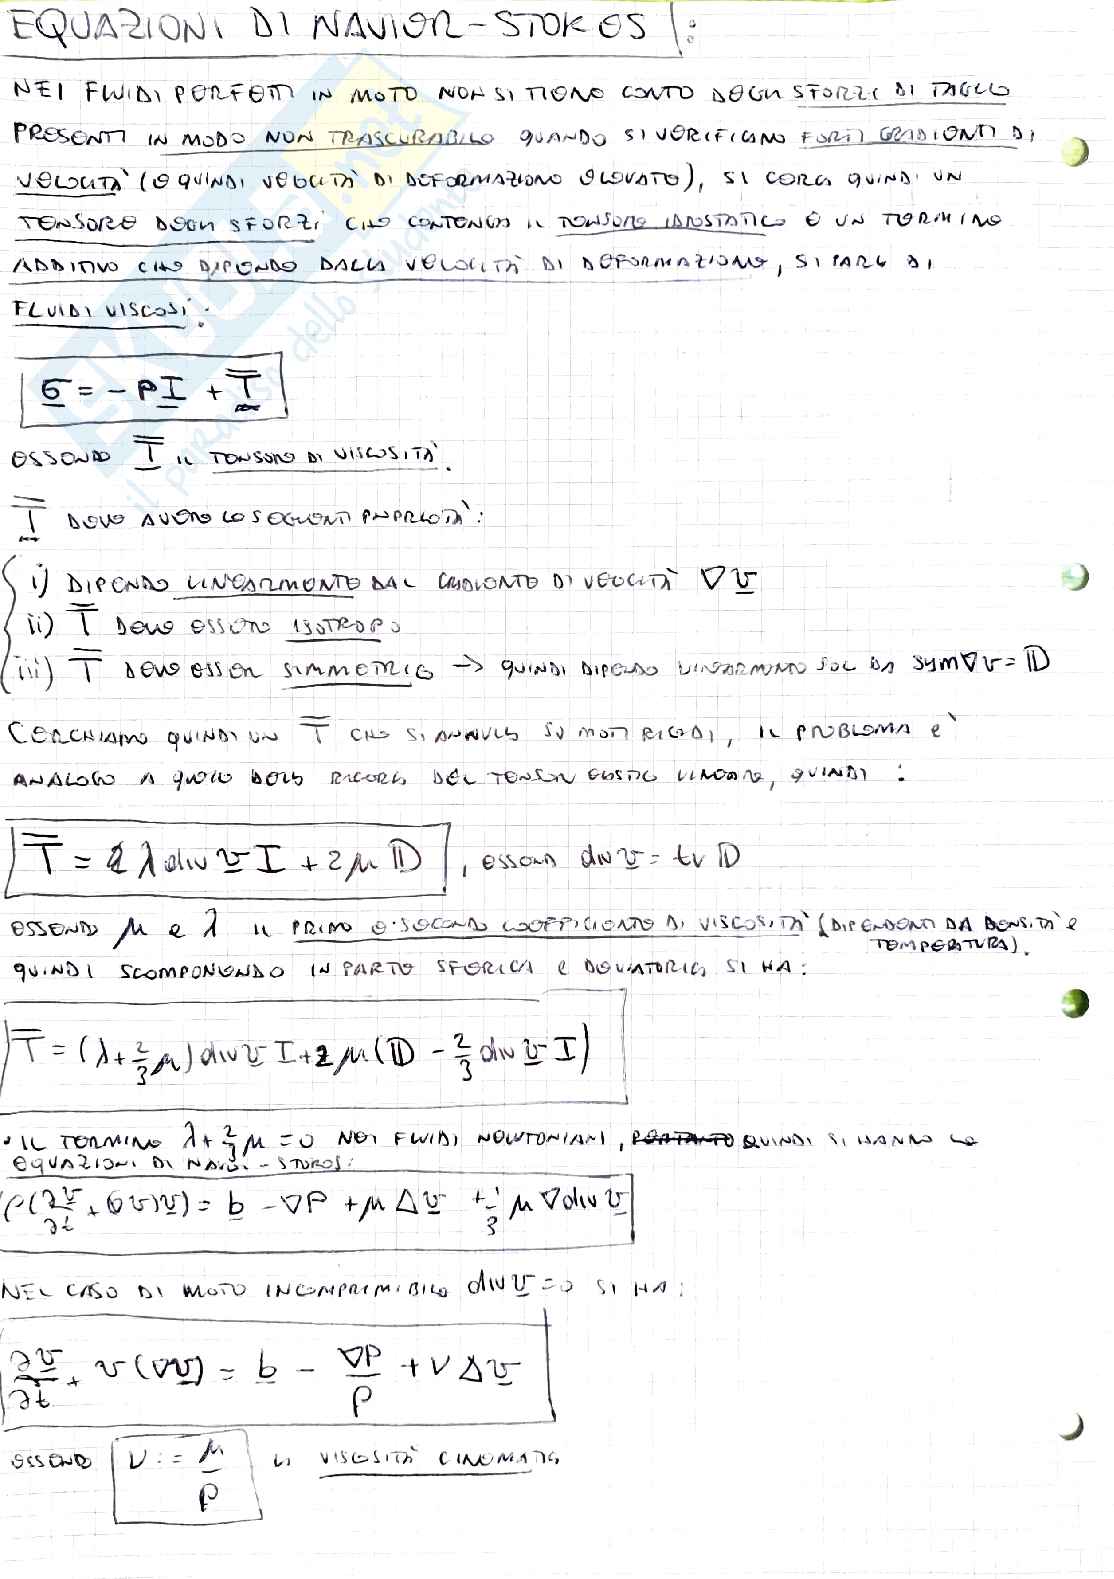 EQUAZIONI DI NAVIER-STOKES:
NEI FLUIDI PERFETTI IN MOTO NON SI TIENE CONTO DEGLI SFORZI DI TAGLIO
PRESENTI IN MODO NON TRASCURABILE QUANDO SI VERIFICANO FORTI GRADIENTI DI
VELOCITÀ (E QUINDI VELOCITÀ DI DEFORMAZIONE ELEVATE), SI CERCA QUINDI UN
TENSORE DEGLI SFORZI CHE CONTENGA IL TENSORE IDROSTATICO E UN TERMINE
ADDITIVO CHE DIPENDE DALLA VELOCITÀ DI DEFORMAZIONE, SI PARLA DI
FLUIDI VISCOSI:
σ = -pI + T
ESSENDO T IL TENSORE DI VISCOSITÀ.
T DEVE AVERE LE SEGUENTI PROPRIETÀ:
i) DIPENDE LINEARMENTE DAL GRADIENTE DI VELOCITÀ ∇v
ii) T DEVE ESSERE ISOTROPO
iii) T DEVE ESSER SIMMETRICO → QUINDI DIPENDE LINEARMENTE SOL DA sym∇v = D
CERCHIAMO QUINDI UN T CHE SI ANNULLA SU MOTI RIGIDI, IL PROBLEMA È
ANALOGO A QUELLO DELLA RICERCA DEL TENSOR ELASTICO LINEARE, QUINDI:
T = λ div v I + 2μ D, ESSENDO div v = tr D
ESSENDO μ e λ IL PRIMO E SECONDO COEFFICIENTE DI VISCOSITÀ (DIPENDENTI DA DENSITÀ E
TEMPERATURA).
QUINDI SCOMPONENDO IN PARTE SFERICA E DEVIATORICA SI HA:
T = (λ + 2/3 μ) div v I + 2μ(D - 2/3 div v I)
• IL TERMINE λ + 2/3 μ = 0 NEI FLUIDI NEWTONIANI, PERTANTO QUINDI SI HANNO LE
EQUAZIONI DI NAVIER-STOKES:
ρ(∂v/∂t + (∇v)v) = b - ∇P + μ Δv + 1/3 μ ∇div v
NEL CASO DI MOTO INCOMPRIMIBILE div v = 0 SI HA:
∂v/∂t + v(∇v) = b - ∇P/ρ + ν Δv
ESSENDO ν := μ/ρ LA VISCOSITÀ CINEMATICA
SKUOLA.net
il paradiso dello studente